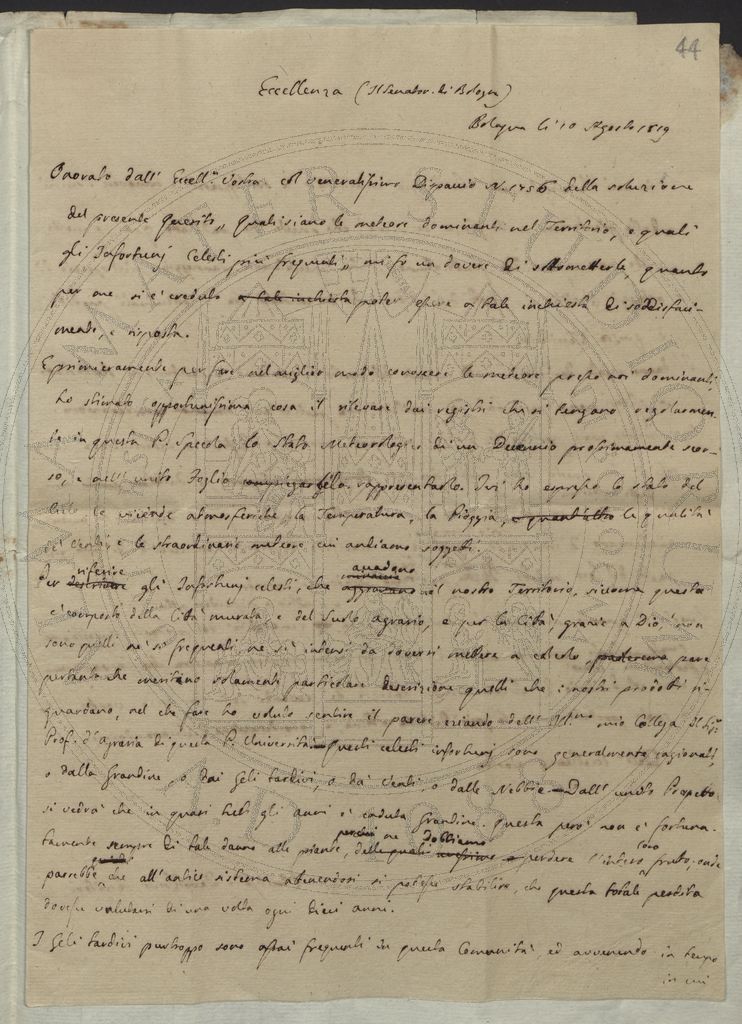 44
Eccellenza (Il Senator. di Bologna)
Bologna li 10 Agosto 1819
Onorato dall' Eccell.ª Vostra col veneratissimo Dispaccio N. 1756 della soluzione
del presente quesito,, quali siano le meteore dominanti nel Territorio, e quali
gli Infortunj Celesti più frequenti,, mi fo un dovere di sottometterle, quanto
per me si è creduto a tale inchiesta poter essere a tale inchiesta di soddisfaci-
mento, e risposta.
E primieramente per fare nel miglior modo conoscere le meteore presso noi dominanti,
ho stimato opportunissima cosa il rilevare dai registri che si tengono regolarmen-
te in questa P. Specola lo Stato Meteorologico di un Decennio prossimamente scor-
so, e nell' unito Foglio rappresentarlo. Ivi ho espresso lo stato del
Cielo le vicende atmosferiche, la Temperatura, la Pioggia, e quant'altro le qualità
dei Venti, e le straordinarie meteore cui andiamo soggetti.
Per descrivere riferire gli Infortunj celesti, che accadono nel nostro Territorio, siccome questo
è composto della Città murata, e del Suolo agrario, e per la Città grazie a Dio non
sono quelli nè sì frequenti, nè sì intensi da doversi mettere a calcolo, pare
pertanto che meritano solamente particolare descrizione quelli che i nostri prodotti ri-
guardano, nel che fare ho voluto sentire il parere eziandio dell' Ill.mo mio Collega Il Sig.r
Prof. d'Agraria di questa P. Università. Questi celesti infortunj sono generalmente cagionati,
o dalla Grandine, o dai Geli tardivi, o da' Venti, o dalle Nebbie. Dall' unito Prospetto
si vedrà che in quasi tutti gli anni è caduta Grandine. Questa però non è fortuna-
tamente sempre di tale danno alle piante, delle quali perchè ne dobbiamo perdere l'intero loro frutto, onde
parrebbe quindi che all' antico sistema attenendosi si potesse stabilire, che questa totale perdita
dovesse valutarsi di una volta ogni dieci anni.
I Geli tardivi purtroppo sono assai frequenti in questa Comunità, ed avvenendo in tempo
in cui